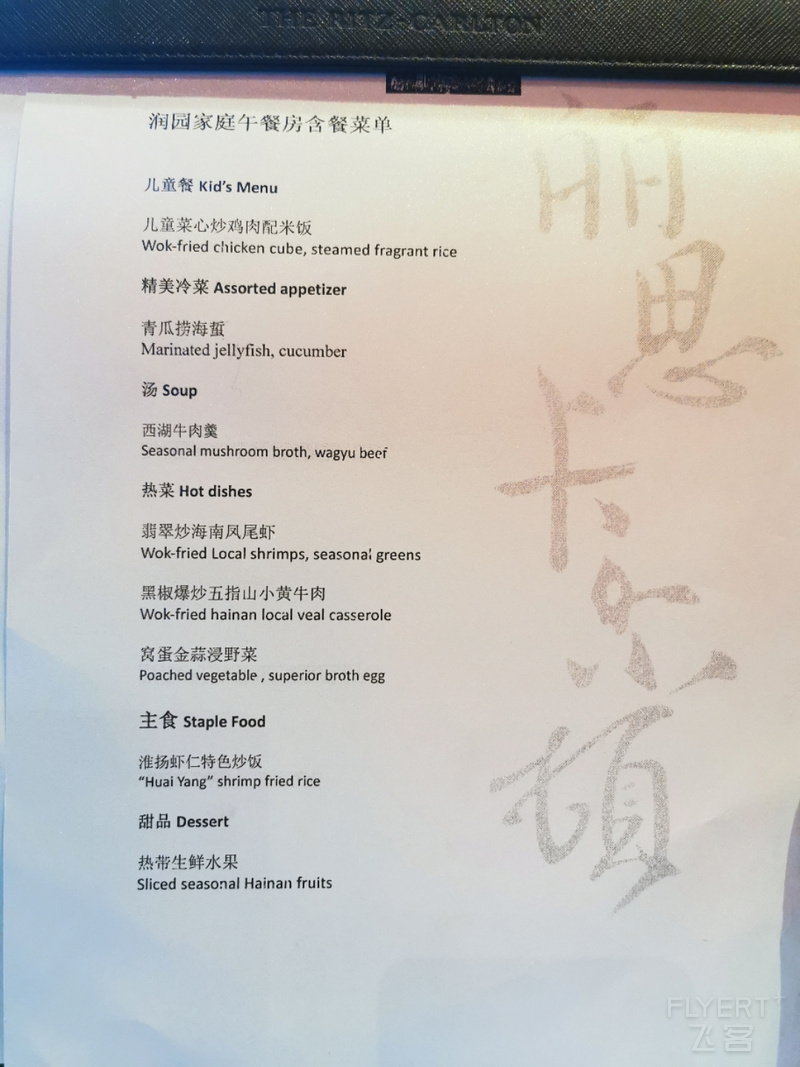 THE RITZ-CARLTON
润园家庭午餐房含餐菜单
儿童餐 Kid's Menu
儿童菜心炒鸡肉配米饭
Wok-fried chicken cube, steamed fragrant rice
精美冷菜 Assorted appetizer
青瓜捞海蜇
Marinated jellyfish, cucumber
汤 Soup
西湖牛肉羹
Seasonal mushroom broth, wagyu beef
热菜 Hot dishes
翡翠炒海南凤尾虾
Wok-fried Local shrimps, seasonal greens
黑椒爆炒五指山小黄牛肉
Wok-fried hainan local veal casserole
窝蛋金蒜浸野菜
Poached vegetable , superior broth egg
主食 Staple Food
淮扬虾仁特色炒饭
“Huai Yang” shrimp fried rice
甜品 Dessert
热带生鲜水果
Sliced seasonal Hainan fruits
丽思卡尔顿
FLYERT+
飞客